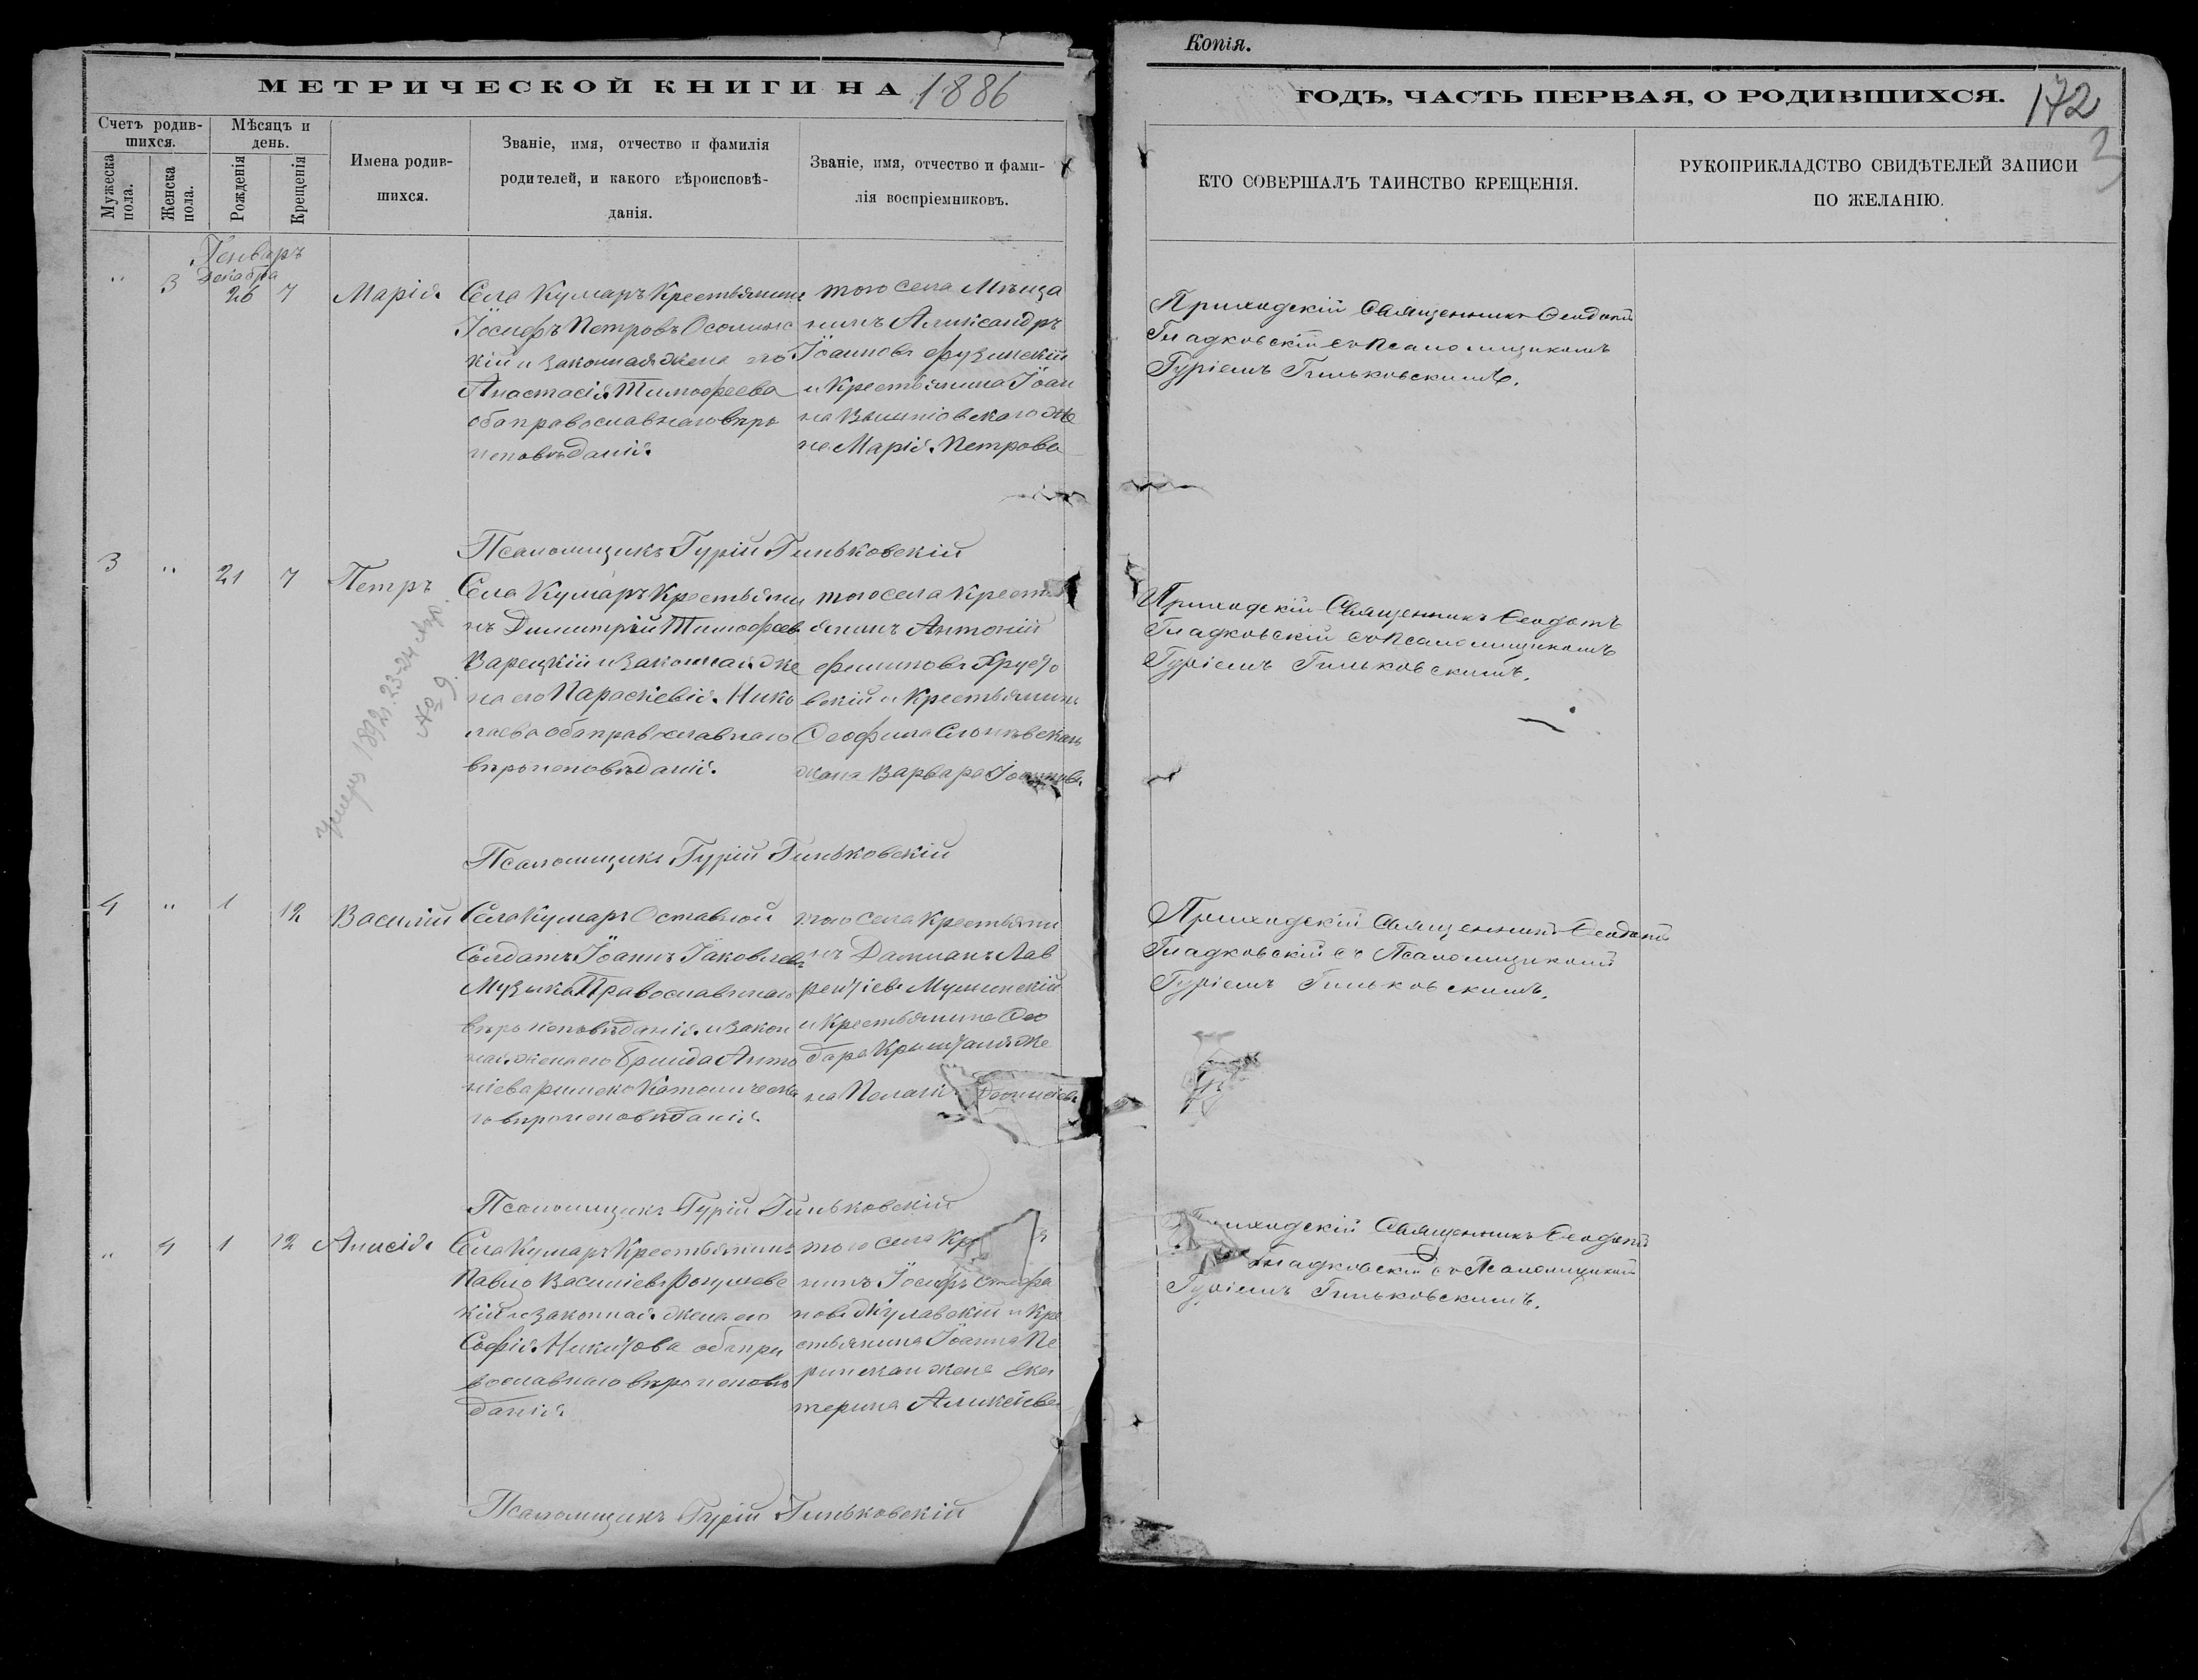 Копія.
МЕТРИЧЕСКОЙ КНИГИ НА 1886
ГОДЪ, ЧАСТЬ ПЕРВАЯ, О РОДИВШИХСЯ. 172
3
Счетъ родив-
шихся.
Мужеска
пола.
Женска
пола.
Мѣсяцъ и
день.
Рожденія
Крещенія
Имена родив-
шихся.
Званіе, имя, отчество и фамилія
родителей, и какого вѣроисповѣ-
данія.
Званіе, имя, отчество и фами-
лія воспріемниковъ.
КТО СОВЕРШАЛЪ ТАИНСТВО КРЕЩЕНІЯ.
РУКОПРИКЛАДСТВО СВИДѢТЕЛЕЙ ЗАПИСИ
ПО ЖЕЛАНІЮ.
Генваръ
Декабря
" 3 26 7 Марія
Села Кумаръ Крестьянинъ
Іосифъ Петровъ
кій и законная жена его
Анастасія Тимофеева
оба православнаго вѣро
исповѣданія.
того села Мѣща
нинъ Александръ
Іоанновъ
и Крестьянина Іоан
на же
на Марія Петрова
Приходскій Священникъ Ѳеодотъ
Гладковскій съ Псаломщикомъ
Гуріемъ Гиньковскимъ.
Псаломщикъ Гурій Гиньковскій
3 " 21 7 Петръ
Села Кумаръ Крестьяни
нъ Димитрій Тимофеевъ
Зарецкій и законная же
на его Параскевія Нико
лаева оба православнаго
вѣроисповѣданія.
того села Крестъ
янинъ Антоній
вскій и Крестьянина
Ѳеофила
жена Варвара Іоаннова
Приходскій Священникъ Ѳеодотъ
Гладковскій съ Псаломщикомъ
Гуріемъ Гиньковскимъ.
1892 23-24 Апр.
№ 9.
Псаломщикъ Гурій Гиньковскій
4 " 1 12 Василій
Села Кумаръ Отставной
Солдатъ Іоаннъ Іаковлевъ
Музыка Православнаго
вѣроисповѣданія и закон
ная жена его Анто
ніева римско Католическа
го вѣроисповѣданія
того села Крестьяни
нъ Даміанъ Лав
рентіевъ
и Крестьянина Ѳео
дора же
на Пелагія
Приходскій Священникъ Ѳеодотъ
Гладковскій съ Псаломщикомъ
Гуріемъ Гиньковскимъ.
Псаломщикъ Гурій Гиньковскій
" 4 1 12 Анисія
Села Кумаръ Крестьянинъ
Павло Василіевъ
кій и законная жена его
Софія Никитова оба пра
вославнаго вѣроисповѣ
данія
того села
нинъ Іосифъ Стефа
новъ и Кре
стьянина Іоанна
жена Ека
терина Алексѣева
Приходскій Священникъ Ѳеодотъ
Гладковскій съ Псаломщикомъ
Гуріемъ Гиньковскимъ.
Псаломщикъ Гурій Гиньковскій